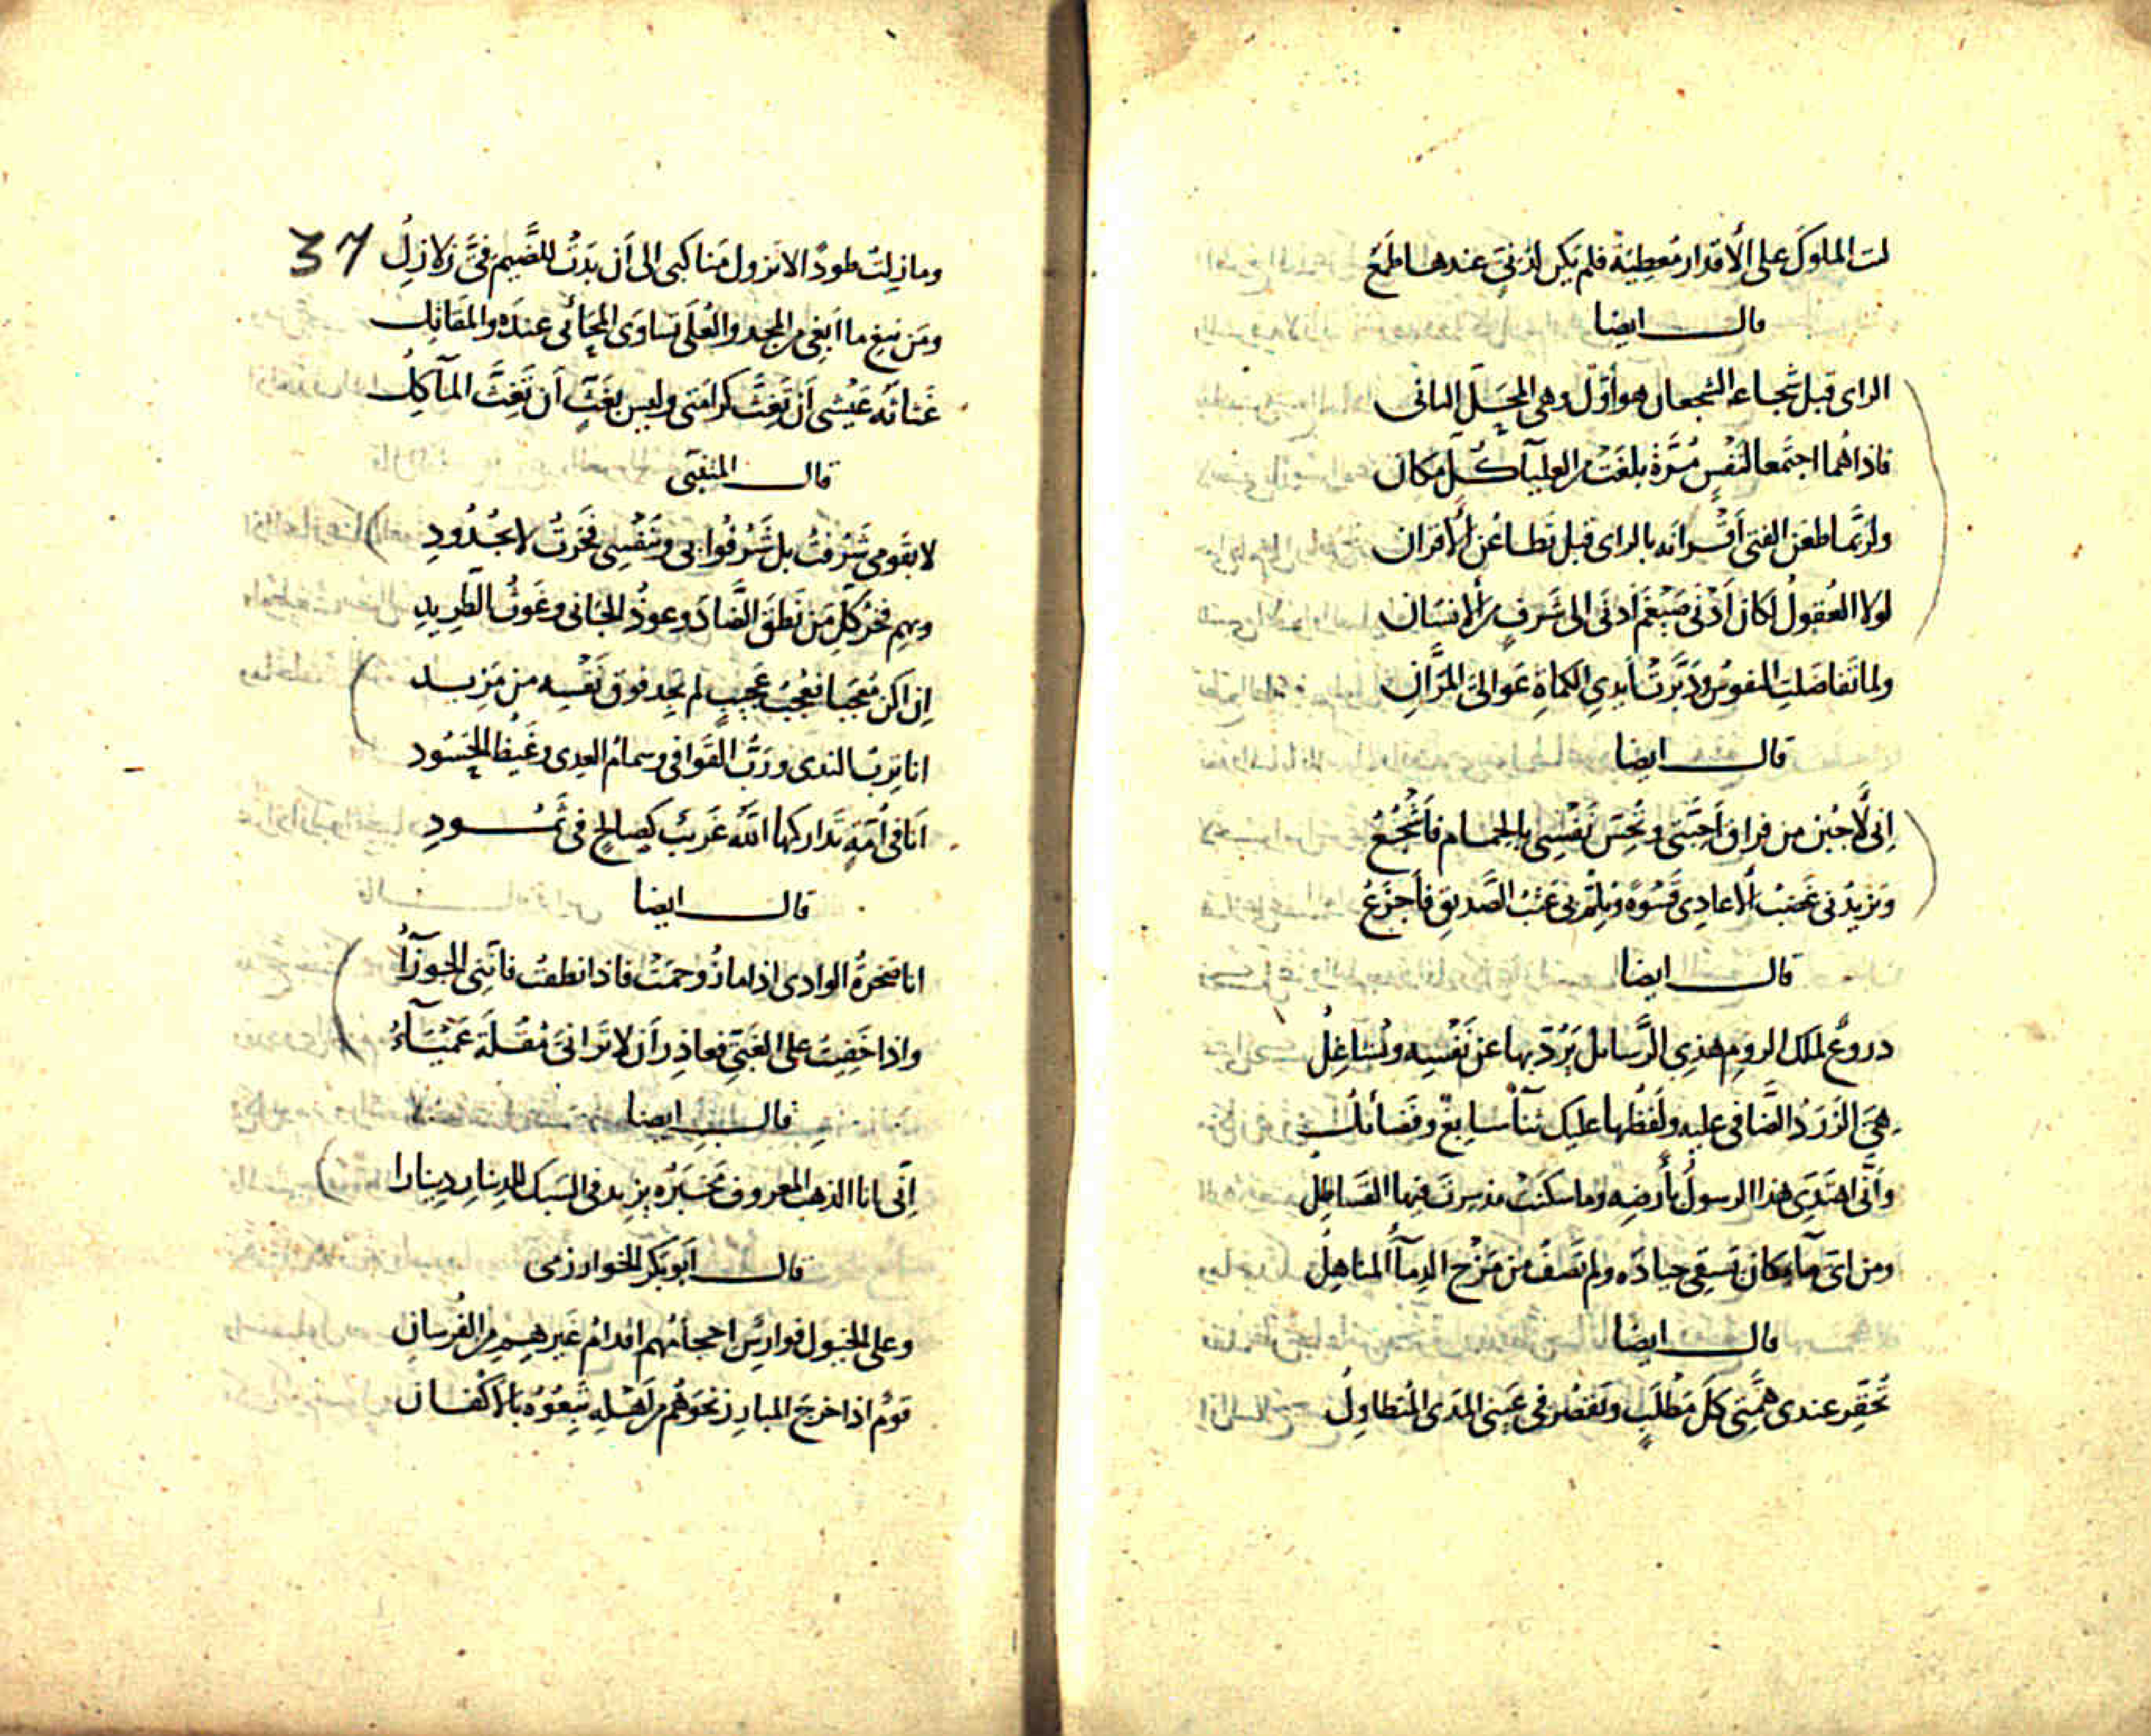 ليت الملوك على الأقدار مُعطِيَةٌ فلم يكن لدَنيٍّ عندها طَمَعُ
قال ايضا
الراى قبل شجاعه الشجعان هو أوّلٌ وهى المحَلّ الثانى
فاذا هُما اجتَمعا لنَفْسٍ مُرَّةٍ بلغَتْ من العلياء كلَّ مكان
ولربَّما طعَن الفتى أقْرانَه بالراى قبل تَطاعُن الأقران
لولا العُقولُ لكان أدْنى ضَيْغَمٍ ادنَى الى شَرفٍ من الانسَان
ولما تفاضَلتِ النفوسُ ودَبَّرتْ أيدى الكماةِ عَوالىَ المرَّانِ
قال ايضا
اِنى لأجبُن من فراق أحِبَّتى وتُحِسّ نَفْسِى بالحمام فأشْجُعُ
ويَزيدُنى غضَبُ الأعادِى قَسْوةً ويُلِمُّ بى عَتبُ الصَّديقِ فأجزَعُ
قال ايضا
دروعٌ لملك الرومِ هذِى الرَّسائل يَرُدّ بها عن نَفْسِه ويُشاغِلُ
هِىَ الزَرَدُ الضَّافى عليه ولَفظُها عليك ثنآء سابغٌ وفَضائلُ
وأنَّى اهتَدَى هذا الرسولُ بأرضِه وما سكَنَتْ مذ سِرتَ فيها القسَاطِل
ومن اىّ مآءٍ كان يَسقِى جيادَه ولم تَصْفُ من مَزْج الدِمآء المناهِلُ
قال ايضا
تُحَقِّر عندى هِمَّتِى كلَّ مَطْلَبٍ ويَقصُر فى عَينى المدَى المُتطاوِلُ
37
وما زِلتُ طودًا لا تزول مَناكبى الى أن بدَتْ للضَّيم فىَّ زَلازِلُ
ومَن يَبغِ ما أبغِى من المجد والعُلَى تساوَى المحَائى عندَه والمَقاتِل
غَثاثَه عَيْشى أن تَغِثَّ كرامَتى وليس بغَثٍّ أن تَغِثَّ المآكِلُ
قال المتنبّى
لا بقَومى شَرُفتُ بل شَرُفُوا بى وبنَفْسِى فَخَرتُ لا بجُدُودِ
وبهم فخرُ كلِّ مَن نَطَق الضَّادَ وعوذُ الجانى وغَوثُ الطَرِيدِ
اِن اكن مُعْجَبا فعُجْبُ عَجِيبٍ لم يجد فوق نَفْسِه من مَزِيد
انا تِربُ الندى ورَبُّ القَوافى وسِمامُ العِدى وغَيظُ الحَسُود
أنا فى أمّةٍ تَدارَكها اللّه غَريبٌ كصالحٍ فى ثَمُودِ
قال ايضا
انا صَخرةُ الوادى اذا ما زُوحمَتْ فاذا نطقتُ فاننى الجوزآءُ
واذا خَفِيتُ على الغَبىّ فعاذِرٌ أن لا تَرانى مُقلَةٌ عَمْيَآءُ
قال ايضا
اِنّى انا الذهبُ المعروف مَخبَرُه يزيد فى السَبك للدينار دينارا
قال أبو بكر الخوارزمى
وعلى الخيول فوارِسٌ احجامُهم اقدامُ غَيرهِم من الفُرسان
قومٌ اذا خرجَ المبارِز نحوَهُم من أهلِه شَيَّعُوُه بالأكْفان